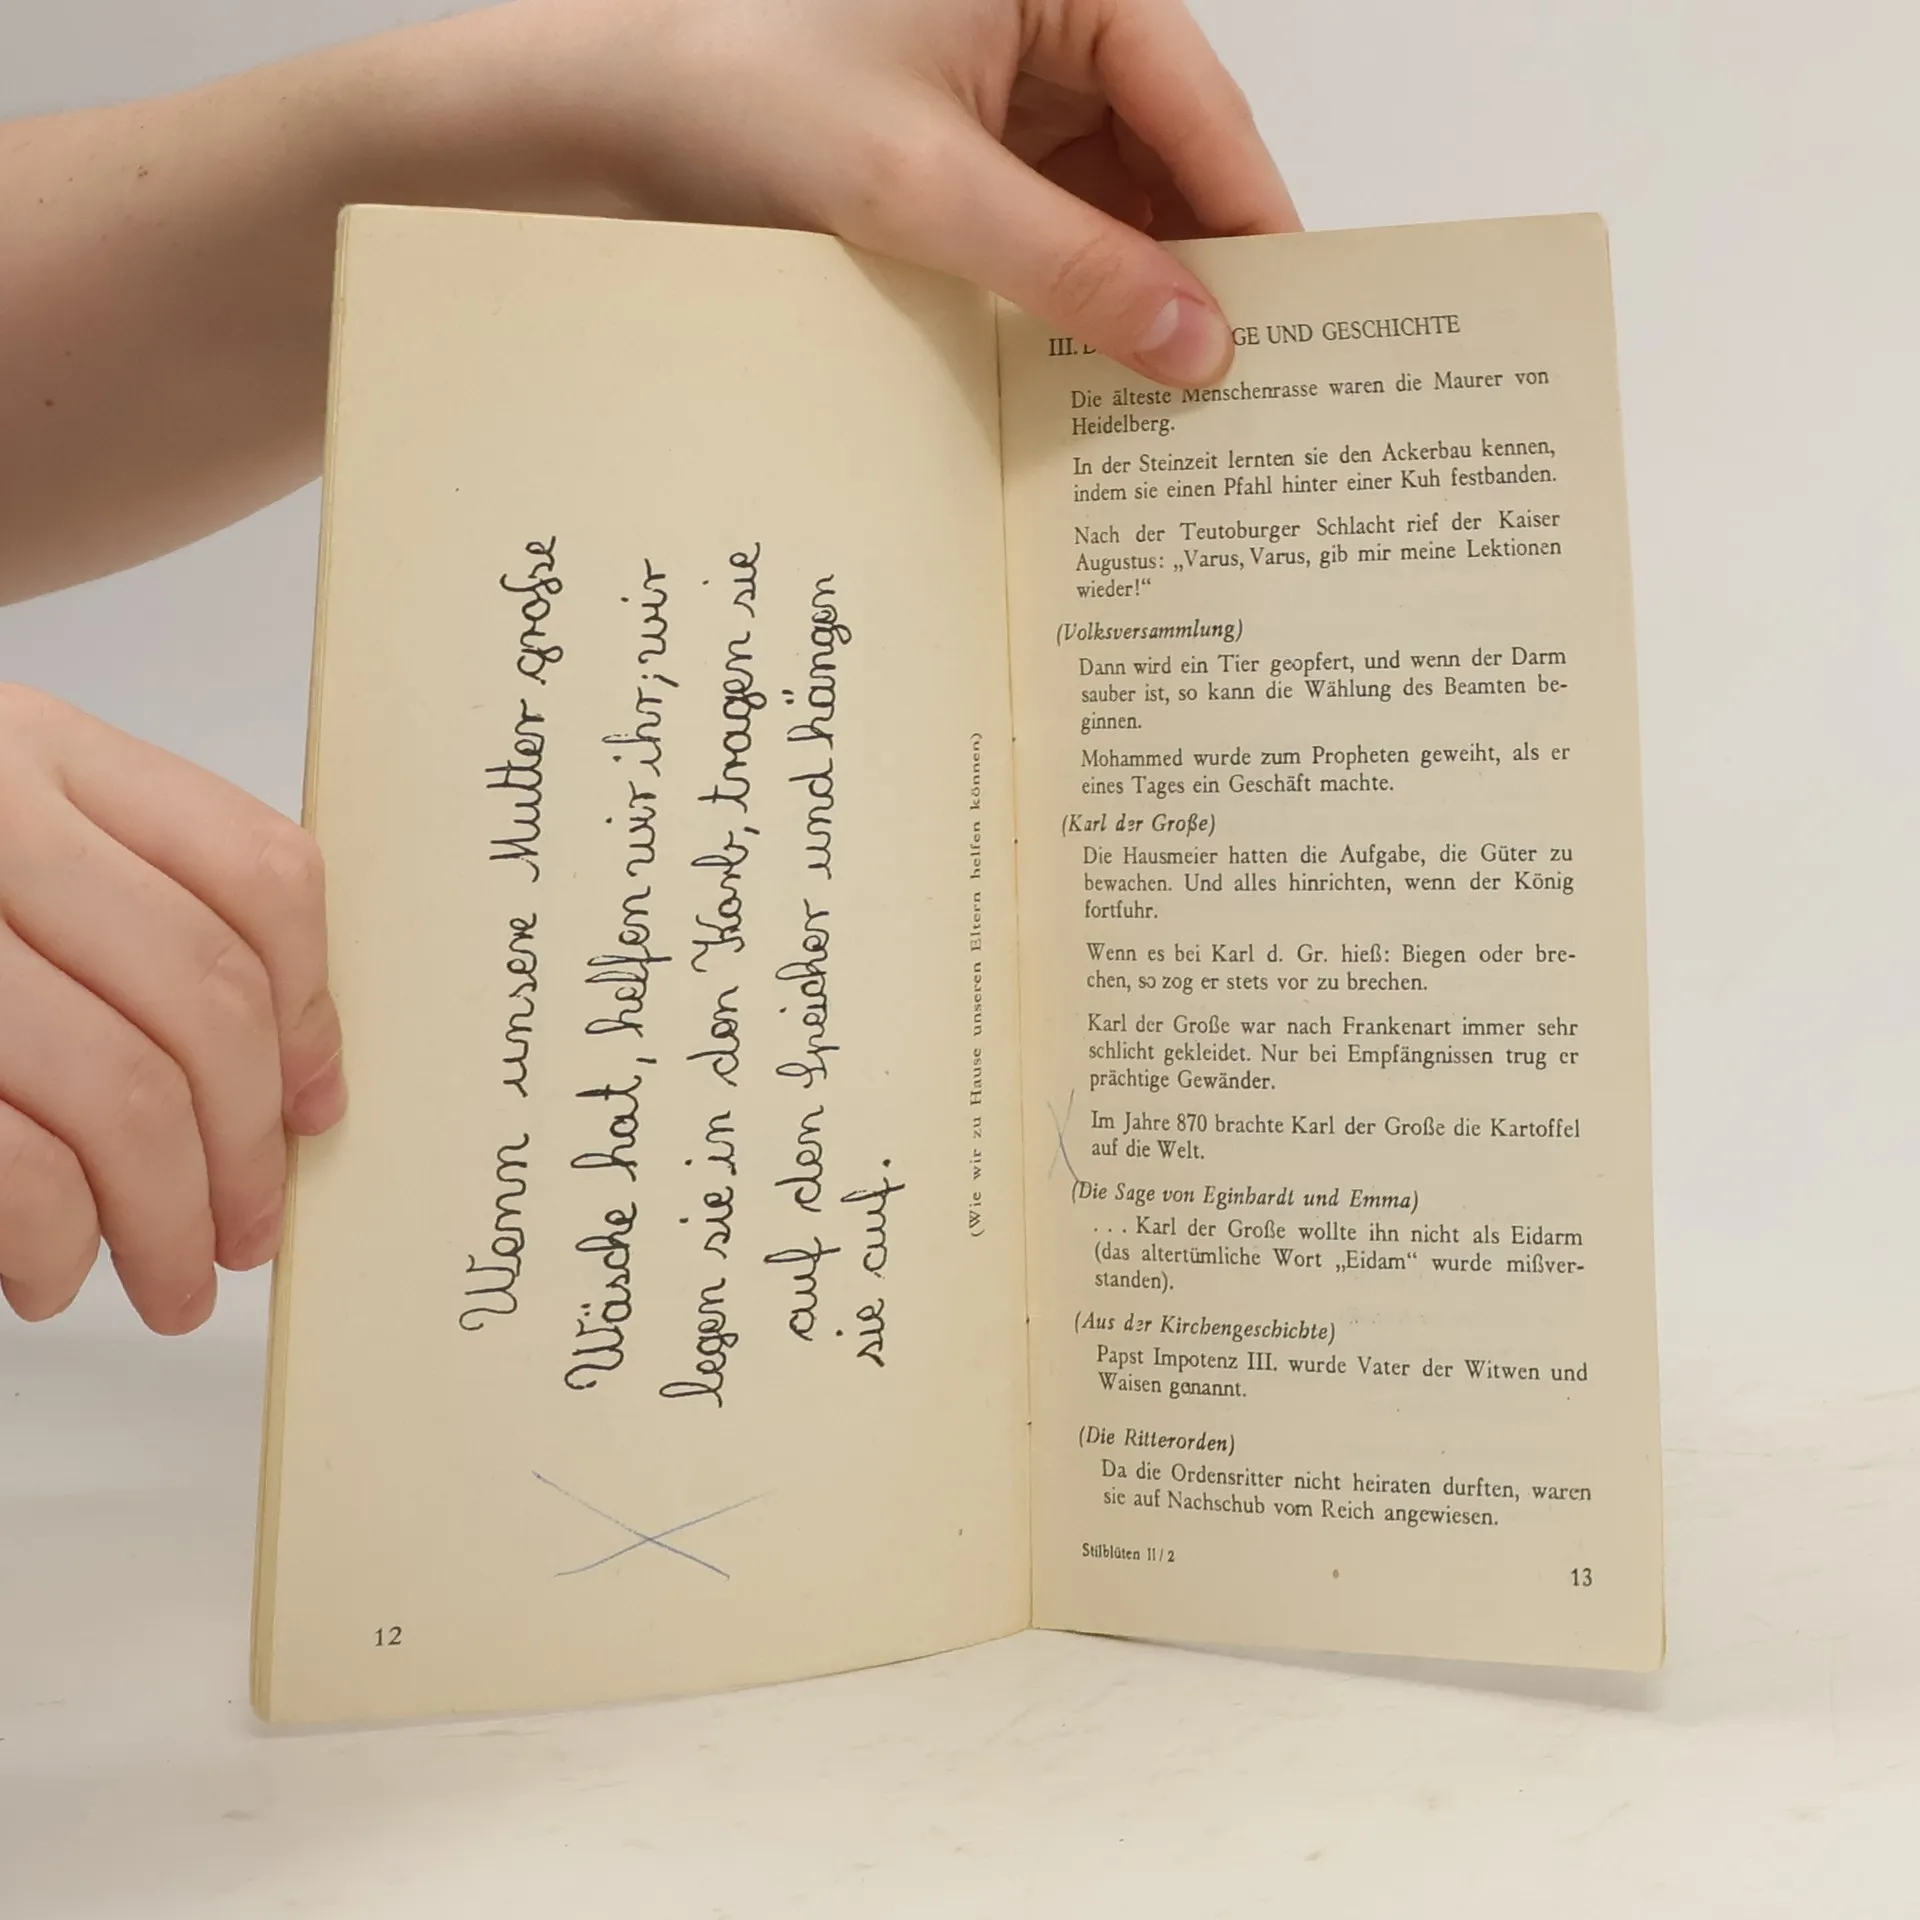 Wenn unsere Mutter große
Wäsche hat, helfen wir ihr; wir
legen sie in den Korb, tragen sie
auf den Speicher und hängen
sie auf.
(Wie wir zu Hause unseren Eltern helfen können)
12
III. GE UND GESCHICHTE
Die älteste Menschenrasse waren die Maurer von
Heidelberg.
In der Steinzeit lernten sie den Ackerbau kennen,
indem sie einen Pfahl hinter einer Kuh festbanden.
Nach der Teutoburger Schlacht rief der Kaiser
Augustus: „Varus, Varus, gib mir meine Lektionen
wieder!“
(Volksversammlung)
Dann wird ein Tier geopfert, und wenn der Darm
sauber ist, so kann die Wählung des Beamten be-
ginnen.
Mohammed wurde zum Propheten geweiht, als er
eines Tages ein Geschäft machte.
(Karl der Große)
Die Hausmeier hatten die Aufgabe, die Güter zu
bewachen. Und alles hinrichten, wenn der König
fortfuhr.
Wenn es bei Karl d. Gr. hieß: Biegen oder bre-
chen, so zog er stets vor zu brechen.
Karl der Große war nach Frankenart immer sehr
schlicht gekleidet. Nur bei Empfängnissen trug er
prächtige Gewänder.
Im Jahre 870 brachte Karl der Große die Kartoffel
auf die Welt.
(Die Sage von Eginhardt und Emma)
. . . Karl der Große wollte ihn nicht als Eidarm
(das altertümliche Wort „Eidam“ wurde mißver-
standen).
(Aus der Kirchengeschichte)
Papst Impotenz III. wurde Vater der Witwen und
Waisen genannt.
(Die Ritterorden)
Da die Ordensritter nicht heiraten durften, waren
sie auf Nachschub vom Reich angewiesen.
Stilblüten II/2
13